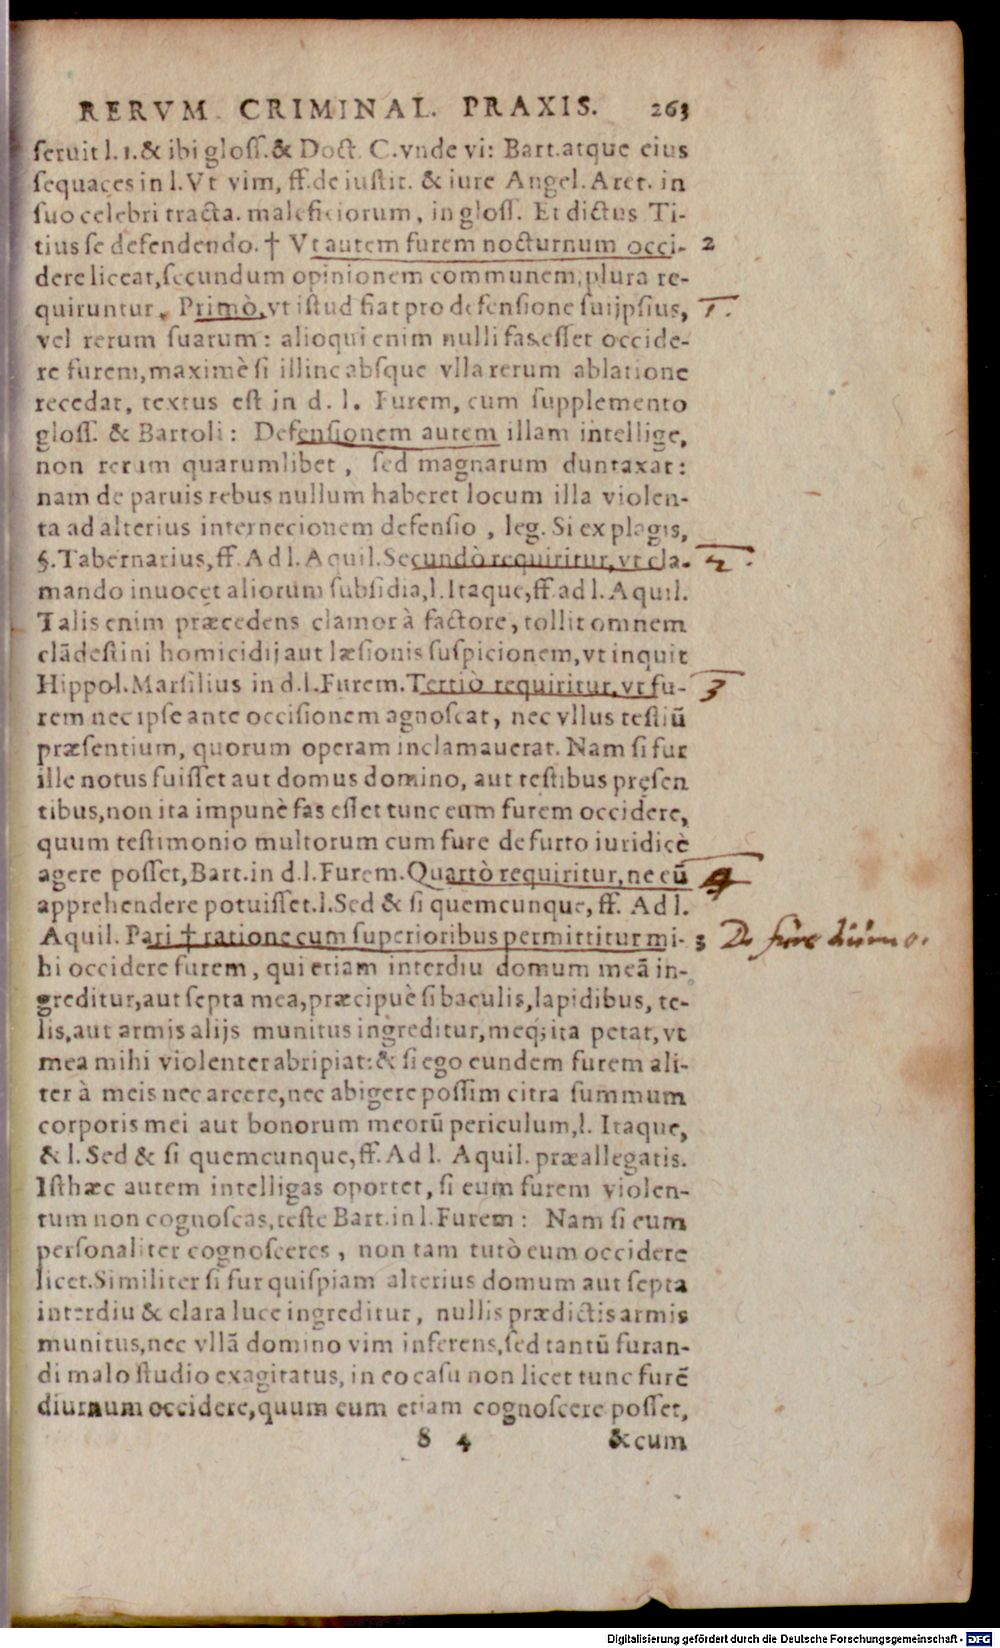 RERVM CRIMINAL. PRAXIS. 263
seruit l. 1. & ibi gloss. & Doct. C. vnde vi: Bart. atque eius
sequaces in l. Vt vim, ff. de iustit. & iure Angel. Aret. in
suo celebri tracta. maleficiorum, in gloss. Et dictus Ti-
tius se defendendo. † Vt autem furem nocturnum occi- 2
dere liceat, secundum opinionem communem, plura re-
quiruntur. Primò, vt istud fiat pro defensione suijpsius, 1.
vel rerum suarum: alioqui enim nulli fas esset occide-
re furem, maximè si illinc absque vlla rerum ablatione
recedat, textus est in d. l. Furem, cum supplemento
gloss. & Bartoli: Defensionem autem illam intellige,
non rerum quarumlibet, sed magnarum duntaxat:
nam de paruis rebus nullum haberet locum illa violen-
ta ad alterius internecionem defensio, leg. Si ex plagis,
§. Tabernarius, ff. Ad l. Aquil. Secundò requiritur, vt cla- 2.
mando inuocet aliorum subsidia, l. Itaque, ff. ad l. Aquil.
Talis enim præcedens clamor à factore, tollit omnem
clādestini homicidij aut læsionis suspicionem, vt inquit
Hippol. Marsilius in d. l. Furem. Tertiò requiritur, vt fu- 3
rem nec ipse ante occisionem agnoscat, nec vllus testiū
præsentium, quorum operam inclamauerat. Nam si fur
ille notus fuisset aut domus domino, aut testibus pręsen
tibus, non ita impunè fas esset tunc eum furem occidere,
quum testimonio multorum cum fure de furto iuridicè
agere posset, Bart. in d. l. Furem. Quartò requiritur, ne eū 4
apprehendere potuisset. l. Sed & si quemcunque, ff. Ad l.
Aquil. Pari † ratione cum superioribus permittitur mi- 3 De fure diurno.
hi occidere furem, qui etiam interdiu domum meā in-
greditur, aut septa mea, præcipuè si baculis, lapidibus, te-
lis, aut armis alijs munitus ingreditur, meq; ita petat, vt
mea mihi violenter abripiat: & si ego eundem furem ali-
ter à meis nec arcere, nec abigere possim citra summum
corporis mei aut bonorum meorū periculum, l. Itaque,
& l. Sed & si quemcunque, ff. Ad l. Aquil. præallegatis.
Isthæc autem intelligas oportet, si eum furem violen-
tum non cognoscas, teste Bart. in l. Furem: Nam si eum
personaliter cognosceres, non tam tutò eum occidere
licet. Similiter si fur quispiam alterius domum aut septa
interdiu & clara luce ingreditur, nullis prædictis armis
munitus, nec vllā domino vim inferens, sed tantū furan-
di malo studio exagitatus, in eo casu non licet tunc furē
diurnum occidere, quum eum etiam cognoscere posset,
8 4 & cum
Digitalisierung gefördert durch die Deutsche Forschungsgemeinschaft - DFG